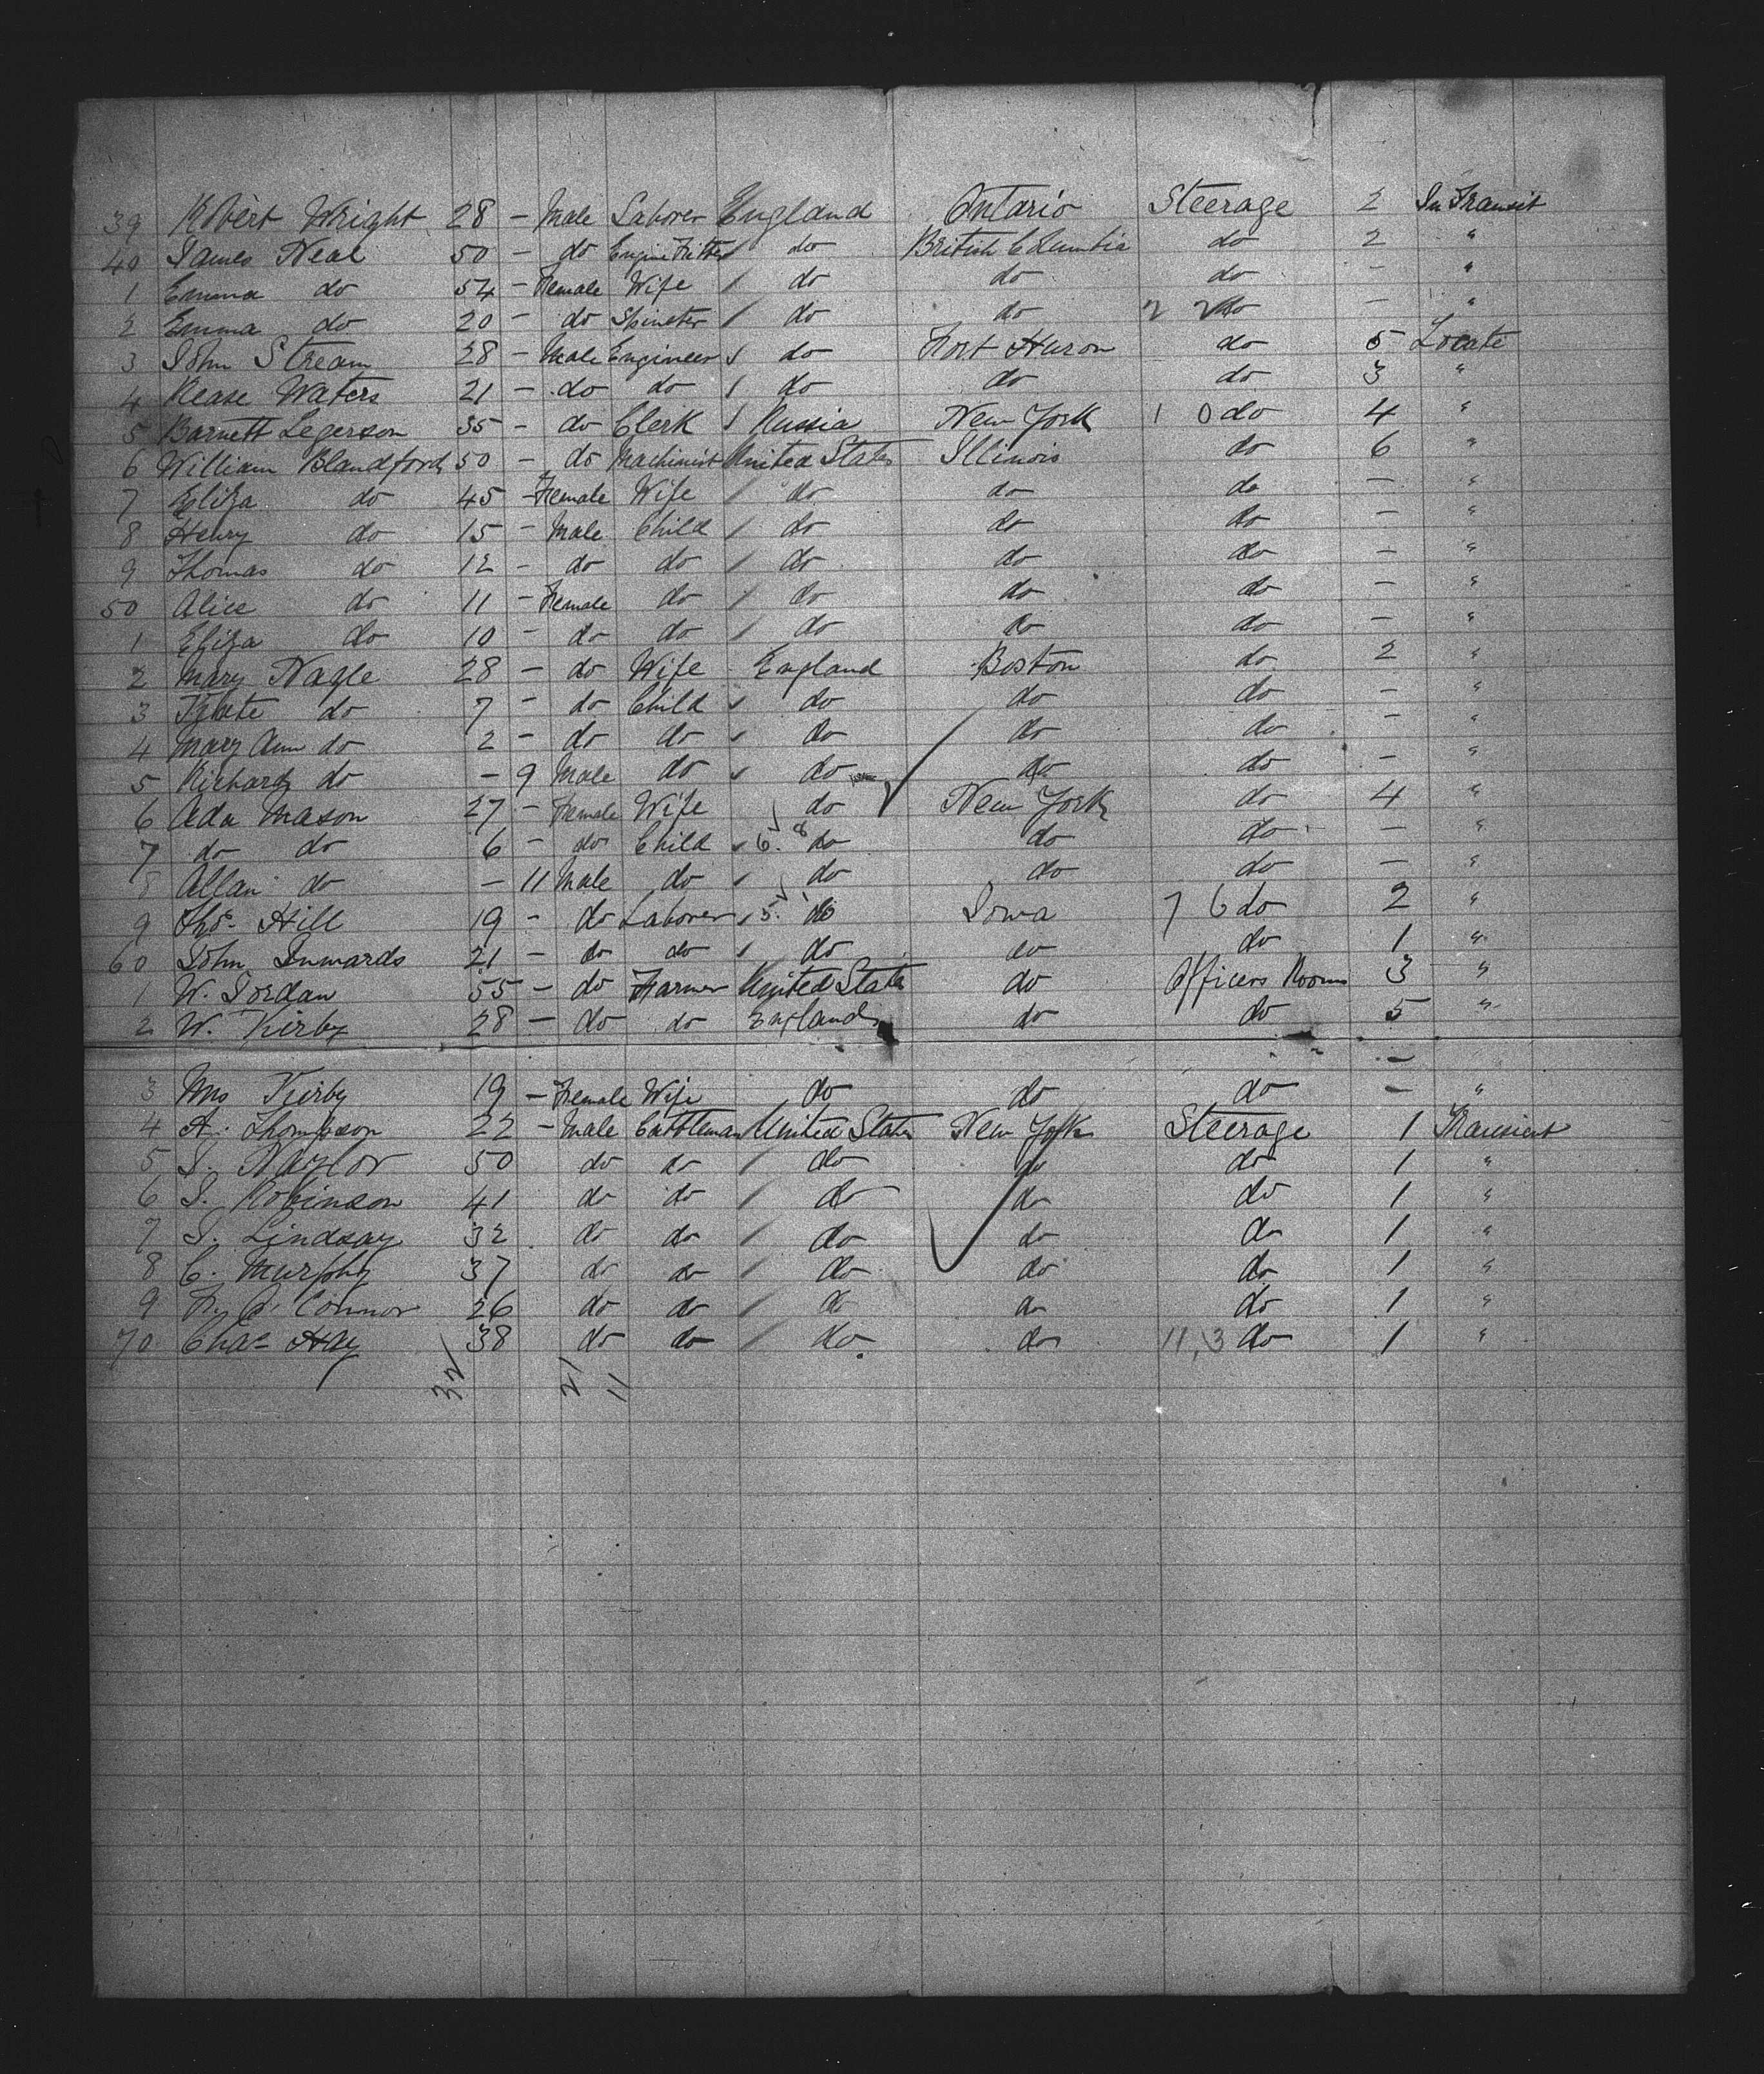 39 Robert Wright 28 - Male Laborer England Ontario Steerage 2 In Transit
40 James Neal 50 - do Engine Fitter / do British Columbia do 2 "
1 Emma do 54 - Female Wife / do do do - "
2 Emma do 20 - do Spinster / do do 2 2 do - "
3 John Stream 28 - Male Engineer / do Port Huron do 5 Locate
4 Rease Waters 21 - do do / do do do 3 "
5 Barnett Legerson 35 - do Clerk / Russia New York 1 0 do 4 "
6 William Blandford 50 - do Machinist United States Illinois do 6 "
7 Eliza do 45 - Female Wife / do do do - "
8 Henry do 15 - Male Child / do do do - "
9 Thomas do 12 - do do / do do do - "
50 Alice do 11 - Female do / do do do - "
1 Eliza do 10 - do do / do do do - "
2 Mary Nagle 28 - do Wife England Boston do 2 "
3 Kate do 7 - do Child do do do - "
4 Mary Ann do 2 - do do do do do - "
5 Richard do - 9 Male do do do do - "
6 Ada Mason 27 - Female Wife do New York do 4 "
7 do do 6 - do Child 6. 8 do do do - "
8 Allan do - 11 Male do do do do - "
9 Thos. Hill 19 - do Laborer 5. do Iowa 7 6 do 2 "
60 John Inwards 21 - do do do do do 1 "
1 W. Jordan 55 - do Farmer United States do Officers Rooms 3 "
2 W. Kirby 28 - do do England do do 5 "
3 Mrs Kirby 19 - Female Wife do do do - "
4 A. Thompson 22 - Male Cattleman United States New York Steerage 1 Transient
5 J. Naylor 50 do do / do do do 1 "
6 J. Robinson 41 do do / do do do 1 "
7 J. Lindsay 32 do do / do do do 1 "
8 C. Murphy 37 do do / do do do 1 "
9 O'Connor 26 do do / do do do 1 "
70 Chas Hay 38 do do / do do 11,3 do 1 "
32 21 11